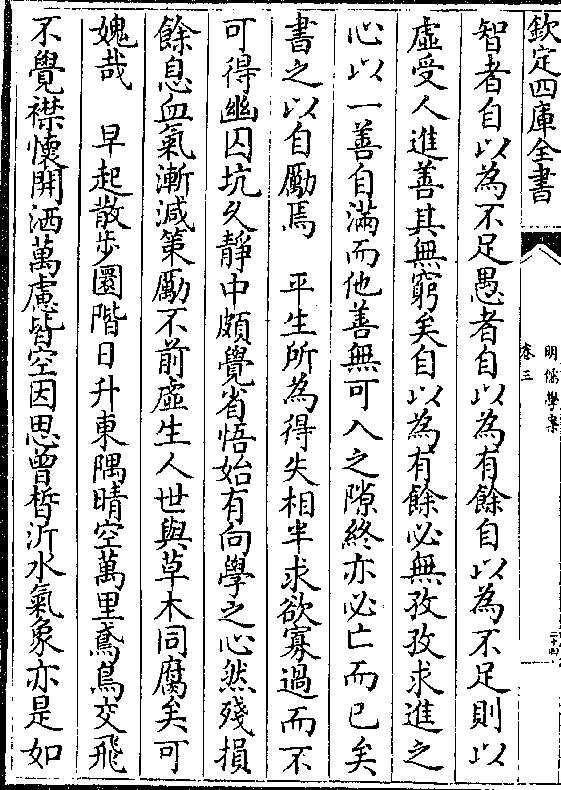 欽定四庫全書
明儒學案
卷三
二十四
智者自以為不足愚者自以為有餘自以為不足則以
虛受人進善其無窮矣自以為有餘必無孜孜求進之
心以一善自滿而他善無可入之隙終亦必亡而已矣
書之以自勵焉 平生所為得失相半求欲寡過而不
可得幽囚坑久靜中頗覺省悟始有向學之心然殘損
餘息血氣漸減策勵不前虛生人世與草木同腐矣可
媿哉 早起散步園階日升東隅晴空萬里鳶鳥交飛
不覺襟懷開洒萬慮皆空因思曾晳沂水氣象亦是如